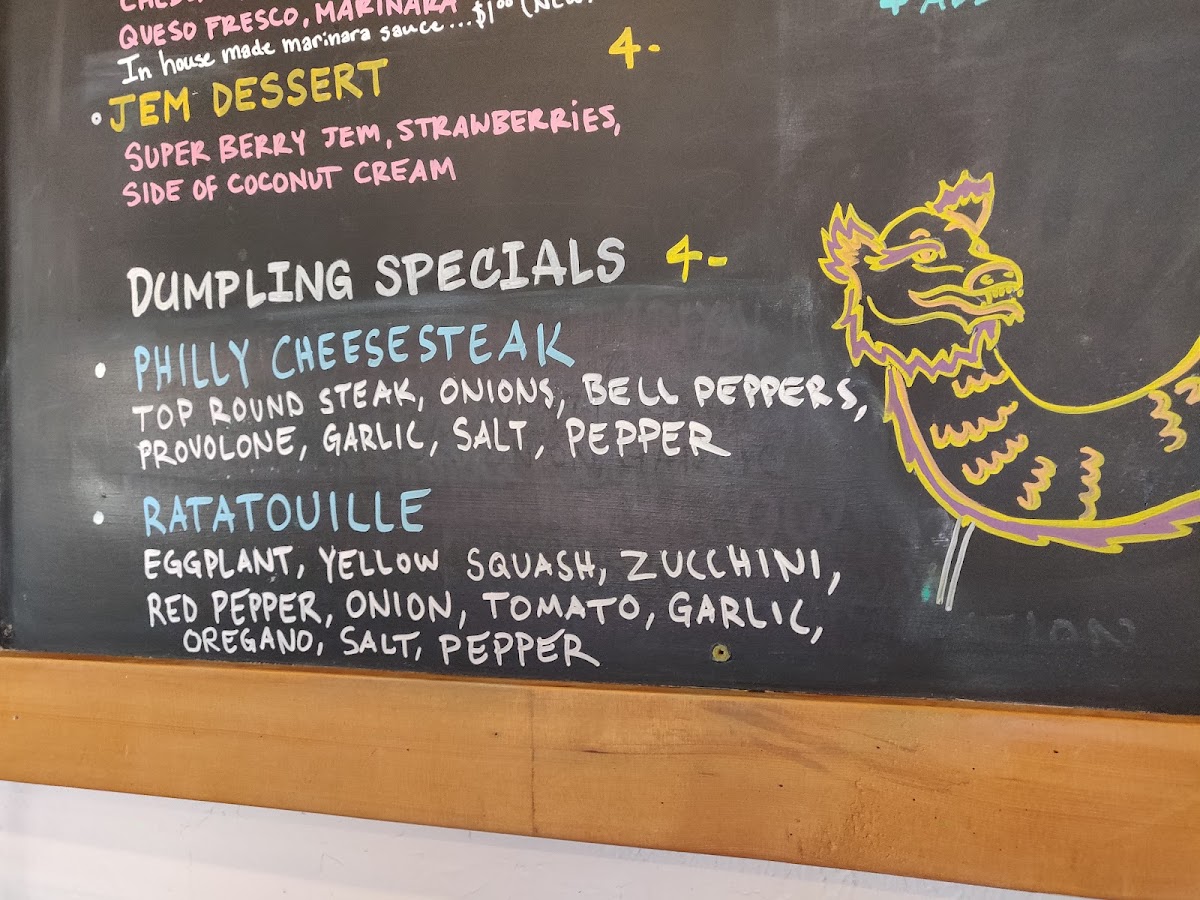 QUESO FRESCO, MARINARA
In house made marinara sauce...$1⁰⁰ (NEW
4-
JEM DESSERT
SUPER BERRY JEM, STRAWBERRIES,
SIDE OF COCONUT CREAM
DUMPLING SPECIALS 4-
PHILLY CHEESESTEAK
TOP ROUND STEAK, ONIONS, BELL PEPPERS,
PROVOLONE, GARLIC, SALT, PEPPER
RATATOUILLE
EGGPLANT, YELLOW SQUASH, ZUCCHINI,
RED PEPPER, ONION, TOMATO, GARLIC,
OREGANO, SALT, PEPPER